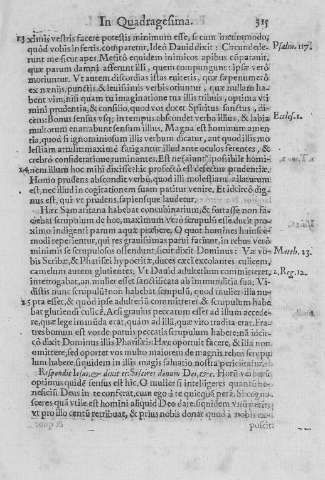 In Quadragesima. 315
ximis vestris facere potestis minimum esse, si cum
quod vobis infertis, comparetur, Ideò David dixit: Circundederunt
runt me sicut apes. Meritò equidem inimicos apibus comparavit,
quæ parum damni afferunt illi, quem compungunt: ipsæ verò
moriuntur. Vt autem discordias istas euiteris, quæ sæpenumerò
ex nænijs, punctis, & leuissimis verbis oriuntur, quæ nullam habent
vim, nisi quam tu imaginatione tua illis tribuis, optima
mini prudentia, & consilio, quod vos docet Spiritus sanctus, dicens:
Bonus sensus usq; in tempus abscondet verba illius, & labia
multorum enarrabunt sensum illius, Magna est hominum amentia,
quod si ignominiosum illis verbum dicatur, aut quod illis molestiam
attulit maximè fatigantur illud ante oculos ferentes, &
crebrò consideratione ruminantes.
nem illum hoc mihi dixisse: hic profectò est defectus prudentiæ.
Homo prudens abscondet verbū, quod illi molestiam allaturum
est, nec illud in cogitationem suam patitur venire. Et idcircò dignus
est, qui vt prudens, sapiensque laudetur.
Hæc Samaritana habebat concubinarium, & fortasse non habebat
scrupulum de hoc, maximum verò scrupulum esse duxit proximo
indigenti parum aquæ præbere, O quot homines huiuscemodi
reperientur, qui res grauissimas patrari faciunt, in rebus verò
minimis se scrupulosos ostendunt sicut dixit Dominus: Væ vobis
Scribæ, & Pharisæi hypocritæ, duces cæci excolantes culicem,
camelum autem glutientes, Vt David adulterium committeret,
interrogabat, an mulier esset sanctificata ab immunditia sua, Vidistis
nunc scrupulū:
pta esset, & quòd ipse adulteriū committeret & scrupulum habebat
glutiendi culicē. Acsi grauius peccatum esset ad illam accedere,
quæ lege immunda erat, quàm ad illā, quæ viro tradita erat, Fratres
bonum est vt de paruis peccatis scrupulum habere,
cò dixit Dominus illis Pharisæis: Hæc oportuit facere, & illa non
omittere, sed oportet vos multo maiorem de magnis rebus scrupulum
habere, siquidem in illis magis saluatio nostra periclitatur.
Respondit Iesus, & dixit ei: Si scires donum Dei, &c. Horū verborū
optimus quidē sensus est hic. O mulier si intelligeres quanta beneficia
Deus in te conferat, cum ego à te quicquā petā. Si cognosceres
quā vtile est homini aliquid Deo dare, siquidem
vt prossilo centū retribuat, & prius nobis donat quod à nobis
poscit:
23
24
25
Psalm. 117.
Eccles. 1.
Matth. 23.
2. Reg. 12.